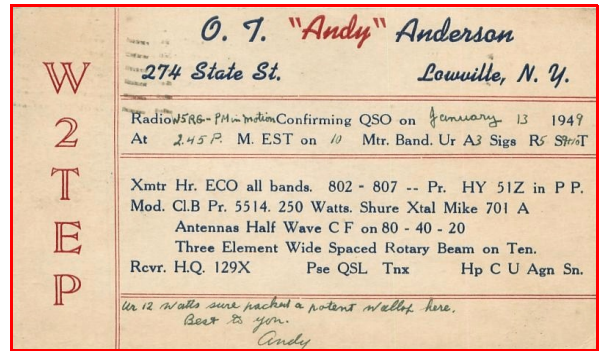 O. T. "Andy" Anderson
274 State St. Lowville, N. Y.
W2TEP
Radio W5RG-PM in motion Confirming QSO on January 13 1949
At 2.45 P. M. EST on 10 Mtr. Band. Ur A3 Sigs R5 S9+10 T
Xmtr Hr. ECO all bands. 802 - 807 -- Pr. HY 51Z in P P.
Mod. Cl.B Pr. 5514. 250 Watts. Shure Xtal Mike 701 A
Antennas Half Wave C F on 80 - 40 - 20
Three Element Wide Spaced Rotary Beam on Ten.
Rcvr. H.Q. 129X Pse QSL Tnx Hp C U Agn Sn.
Ur 12 watts sure packed a potent wallop here.
Best to you.
Andy